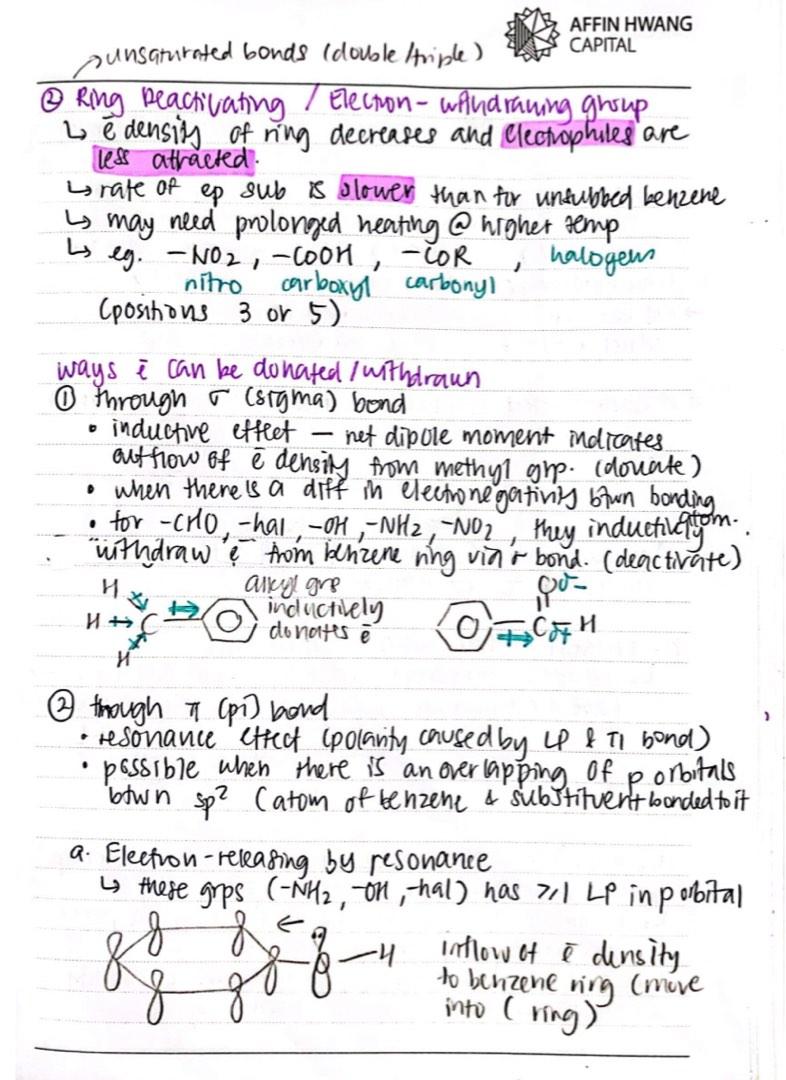 AFFIN HWANG
CAPITAL
unsaturated bonds (double/triple)
② Ring Deactivating / Electron-withdrawing group
↳ ē density of ring decreases and electrophiles are
less attracted.
↳ rate of ep sub is slower than for unsubbed benzene
↳ may need prolonged heating @ higher temp
↳ eg. -NO2, -COOH, -COR, halogens
nitro carboxyl carbonyl
(positions 3 or 5)
ways ē can be donated/withdrawn
① through σ (sigma) bond
• inductive effect — net dipole moment indicates
outflow of ē density from methyl grp. (donate)
• when there is a diff in electronegativity btwn bonding
atom.
• for -CHO, -hal, -OH, -NH2, -NO2, they inductively
withdraw ē from benzene ring via σ bond. (deactivate)
H
H C
H
alkyl grp
inductively
donates ē
O δ-
C δ+ H
② though π (pi) bond
• resonance effect (polarity caused by LP & π bond)
• possible when there is an overlapping of p orbitals
btwn sp² C atom of benzene & substituent bonded to it
a. Electron-releasing by resonance
↳ these grps (-NH2, -OH, -hal) has ≥1 LP in p orbital
H
inflow of ē density
to benzene ring (move
into C ring)